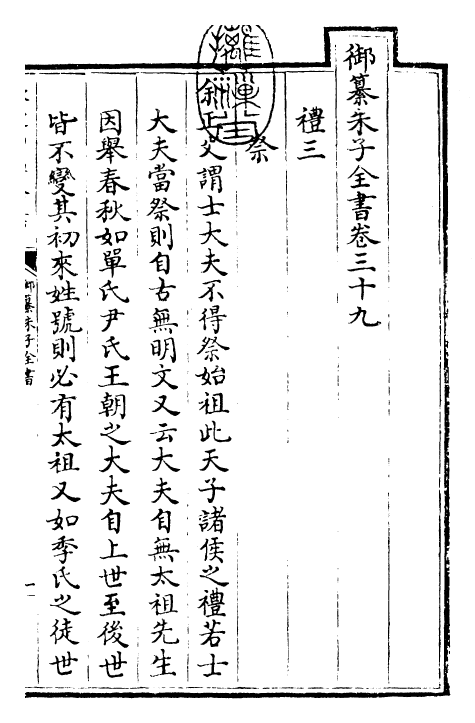 御纂朱子全書卷三十九
禮三
祭
余正父謂士大夫不得祭始祖此天子諸侯之禮若士
大夫當祭則自古無明文又云大夫自無太祖先生
因舉春秋如單氏尹氏王朝之大夫自上世至後世
皆不變其初來姓號則必有太祖又如季氏之徒世
御纂朱子全書
一